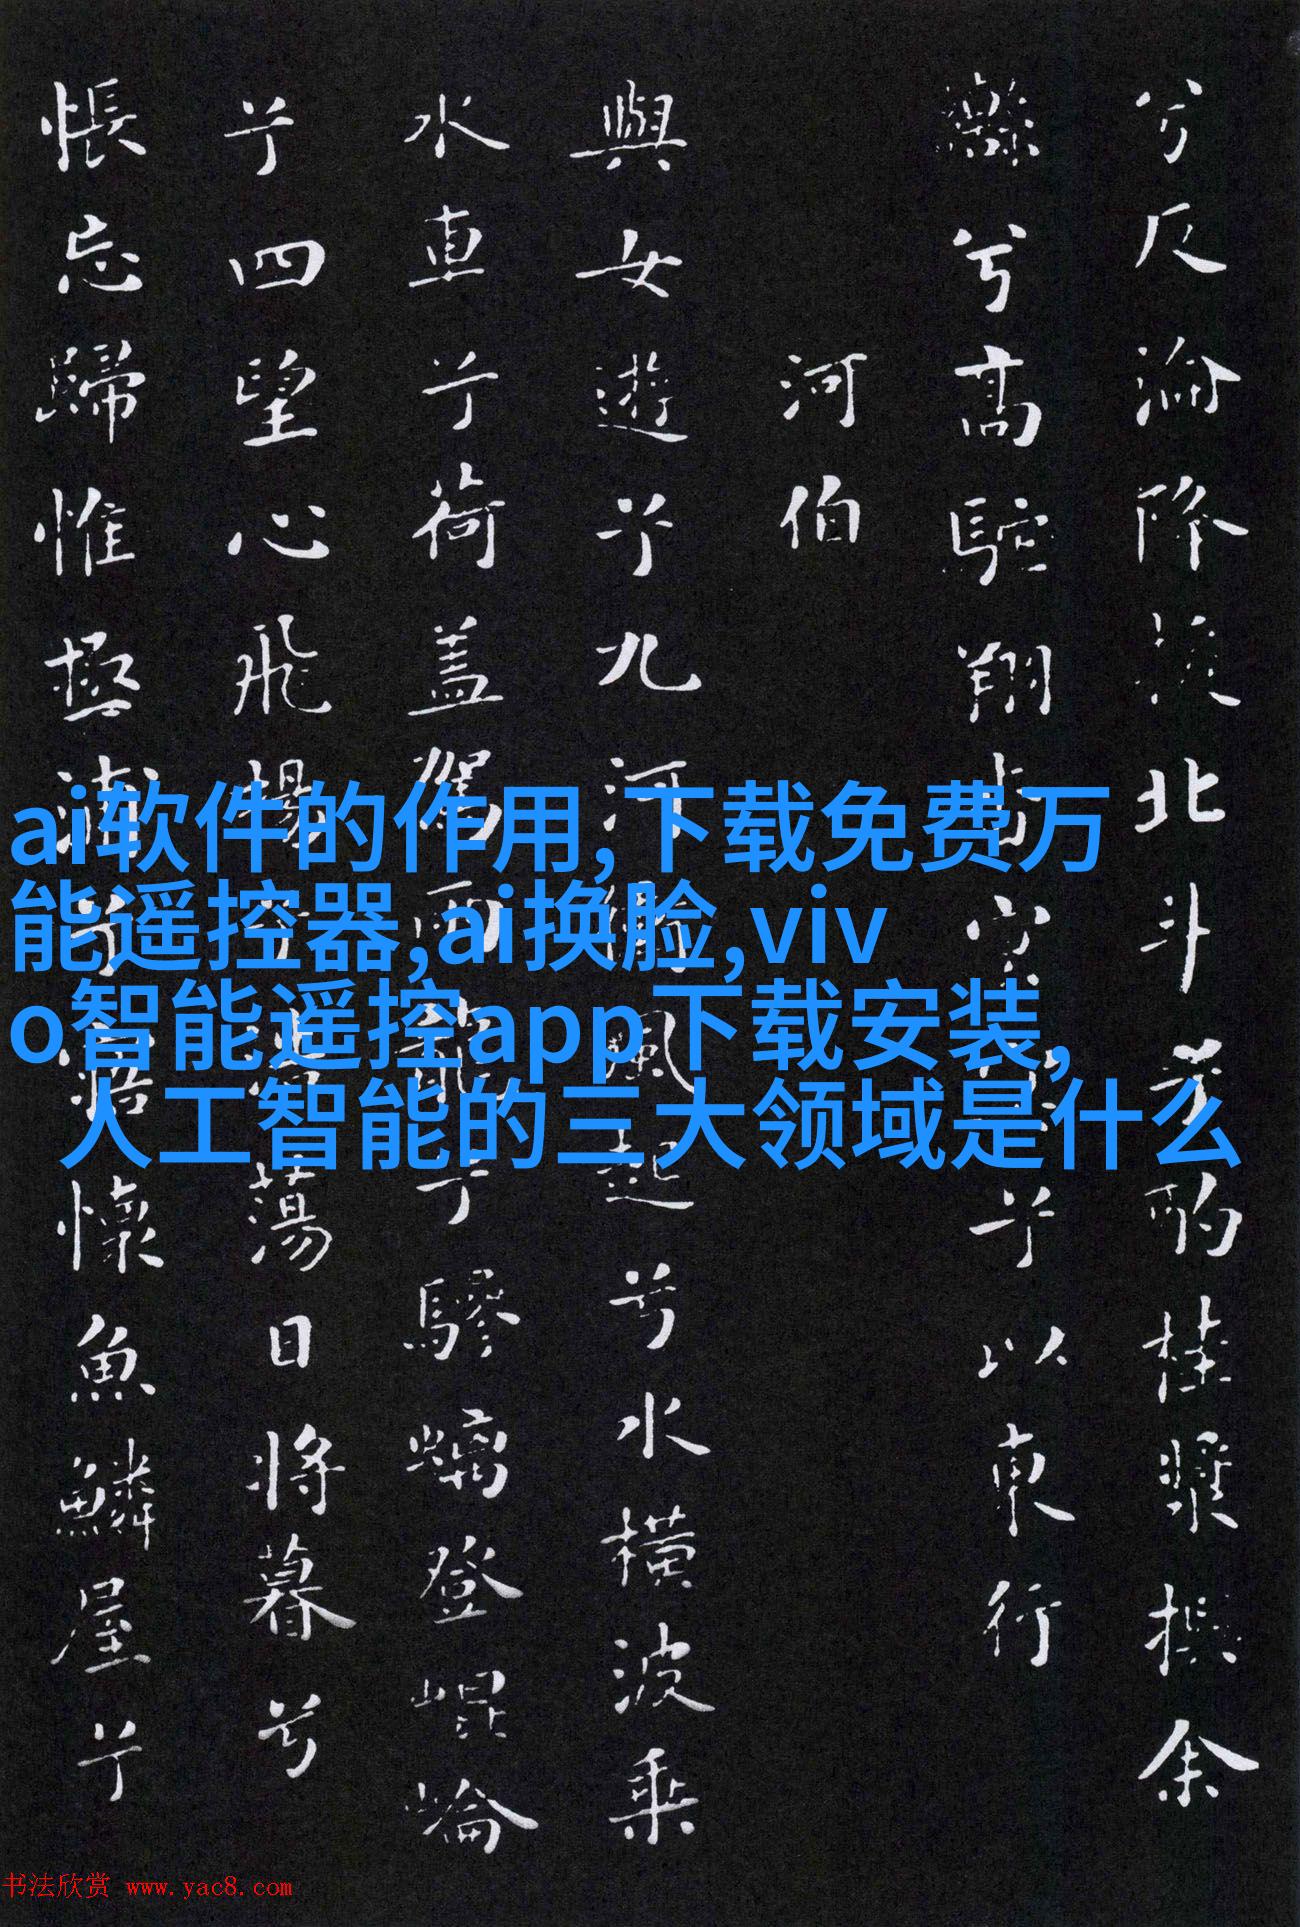 兮反淪降援北斗兮酌桂漿撰余
轡兮高駝翔杳冥兮以東行
河伯
與女遊兮九河衝風起兮水橫波乘
水車兮荷蓋駕兩龍兮驂螭登崐崘
兮四望心飛揚浩蕩日將暮兮
悵忘歸惟極浦兮寤懷魚鱗屋兮
ai软件的作用,下载免费万
能遥控器,ai换脸,viv
o智能遥控app下载安装,
人工智能的三大领域是什么
书法欣赏 www.yac8.com